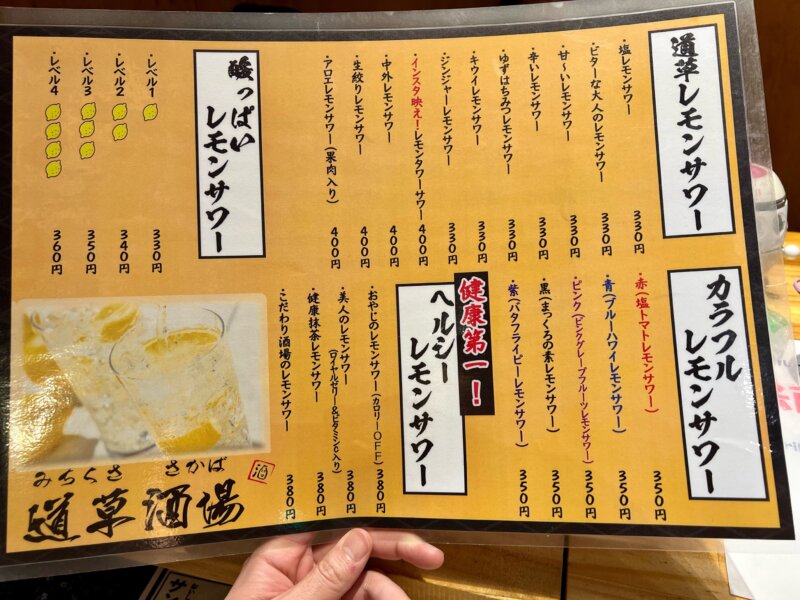 道草レモンサワー
・塩レモンサワー 330円
・ビターな大人のレモンサワー 330円
・甘〜いレモンサワー 330円
・辛いレモンサワー 330円
・ゆずはちみつレモンサワー 330円
・キウイレモンサワー 330円
・ジンジャーレモンサワー 330円
・インスタ映え!レモンタワーサワー 400円
・中外レモンサワー 400円
・生絞りレモンサワー 400円
・アロエレモンサワー(果肉入り) 400円
酸っぱいレモンサワー
・レベル1 330円
・レベル2 340円
・レベル3 350円
・レベル4 360円
カラフルレモンサワー
・赤(塩トマトレモンサワー) 350円
・青(ブルーハワイレモンサワー) 350円
・ピンク(ピンクグレープフルーツレモンサワー) 350円
・黒(まっくろの素レモンサワー) 350円
・紫(バタフライピーレモンサワー) 350円
健康第一!
ヘルシーレモンサワー
・おやじのレモンサワー(カロリーOFF) 380円
・美人のレモンサワー(ロイヤルゼリー&ビタミンC入り) 380円
・健康抹茶レモンサワー 380円
・こだわり酒場のレモンサワー 380円
みちくさ さかば
道草酒場
酒